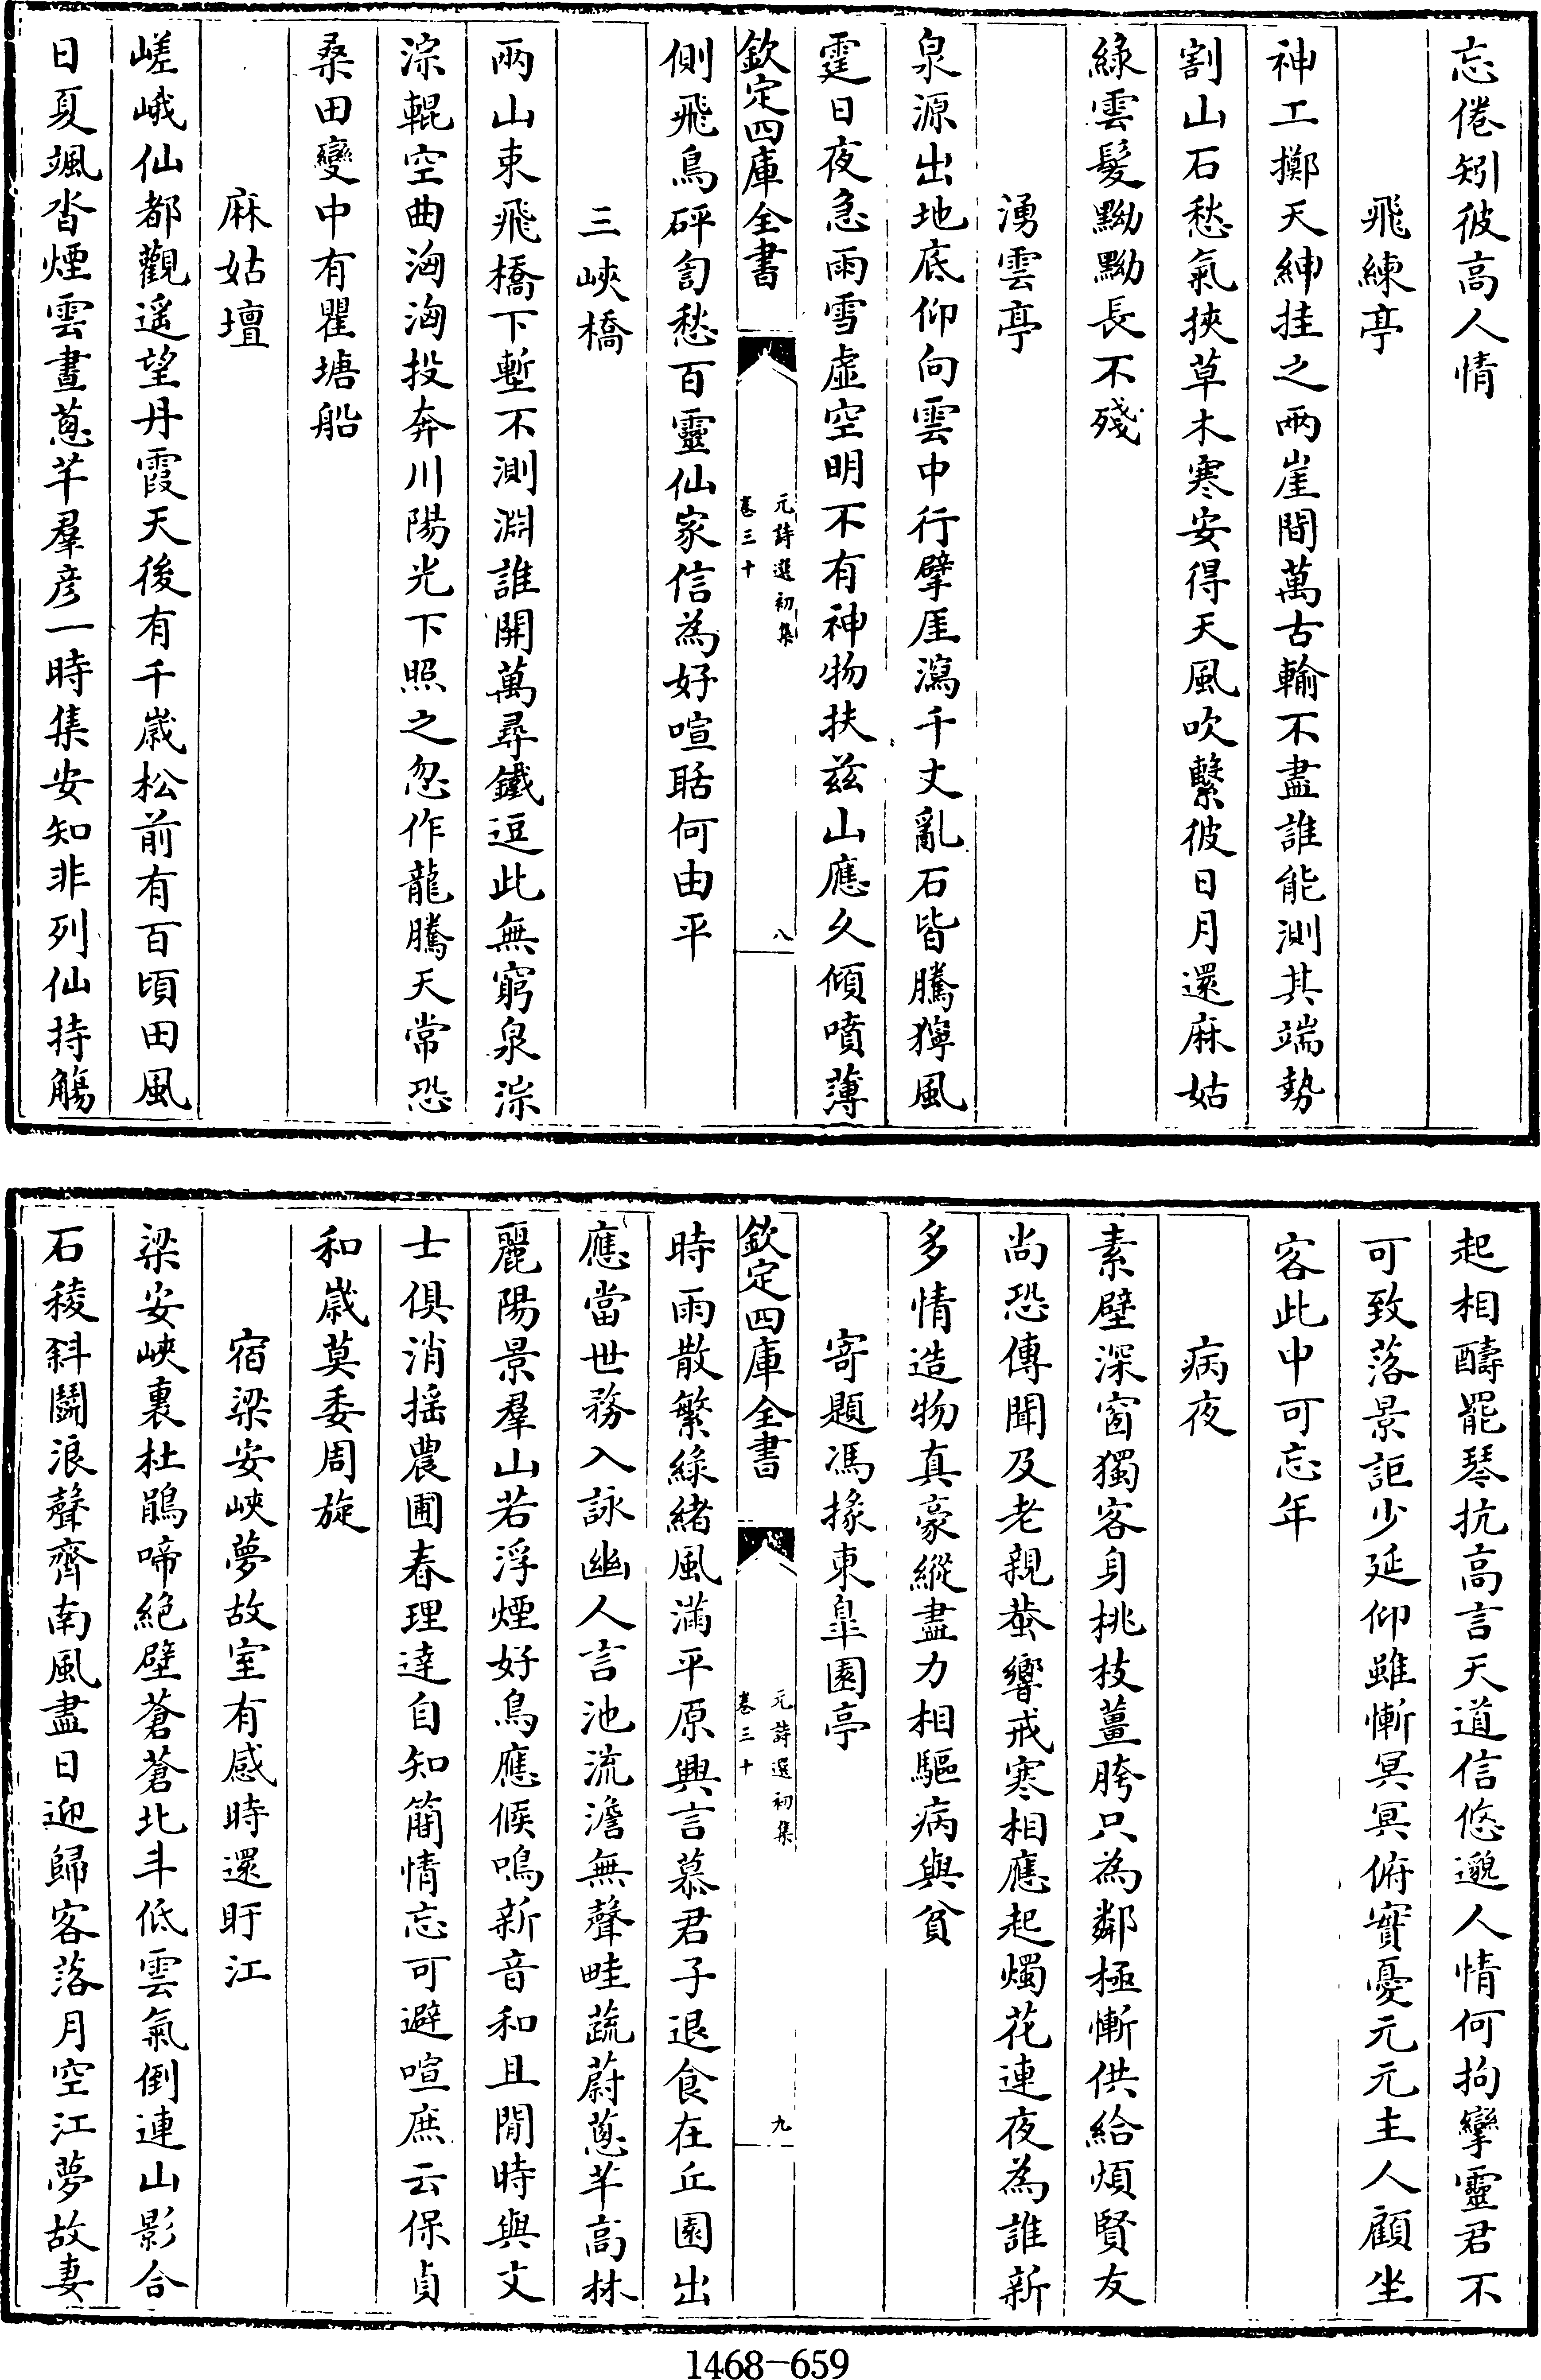 忘倦矧彼高人情
飛練亭
神工擲天紳挂之兩崖間萬古輸不盡誰能測其端勢
割山石愁氣挾草木寒安得天風吹繫彼日月還麻姑
綠雲髮黝黝長不殘
湧雲亭
泉源出地底仰向雲中行擘厓瀉千丈亂石皆騰獰風
霆日夜急雨雪虛空明不有神物扶兹山應久傾噴薄
欽定四庫全書
元詩選初集
卷三十
八
側飛鳥砰訇愁百靈仙家信為好喧聒何由平
三峽橋
兩山束飛橋下塹不測淵誰開萬尋鐵逗此無窮泉淙
淙輥空曲洶洶投奔川陽光下照之忽作龍騰天常恐
桑田變中有瞿塘船
麻姑壇
嵯峨仙都觀遥望丹霞天後有千歲松前有百頃田風
日夏颯沓煙雲晝蔥芊羣彦一時集安知非列仙持觴
起相醻罷琴抗高言天道信悠邈人情何拘攣靈君不
可致落景詎少延仰雖慚冥冥俯實憂元元主人顧坐
客此中可忘年
病夜
素壁深窗獨客身桃枝薑胯只為鄰極慚供給煩賢友
尚恐傳聞及老親蛩響戒寒相應起燭花連夜為誰新
多情造物真豪縱盡力相驅病與貧
寄題馮掾東臯園亭
欽定四庫全書
元詩選初集
卷三十
九
時雨散繁綠緒風滿平原興言慕君子退食在丘園出
應當世務入詠幽人言池流澹無聲畦蔬蔚蔥芊高林
麗陽景羣山若浮煙好鳥應候鳴新音和且閒時與文
士俱消摇農圃春理達自知簡情忘可避喧庶云保貞
和歲莫委周旋
宿梁安峽夢故室有感時還盱江
梁安峽裏杜鵑啼絶壁蒼蒼北斗低雲氣倒連山影合
石稜斜鬭浪聲齊南風盡日迎歸客落月空江夢故妻
1468-659